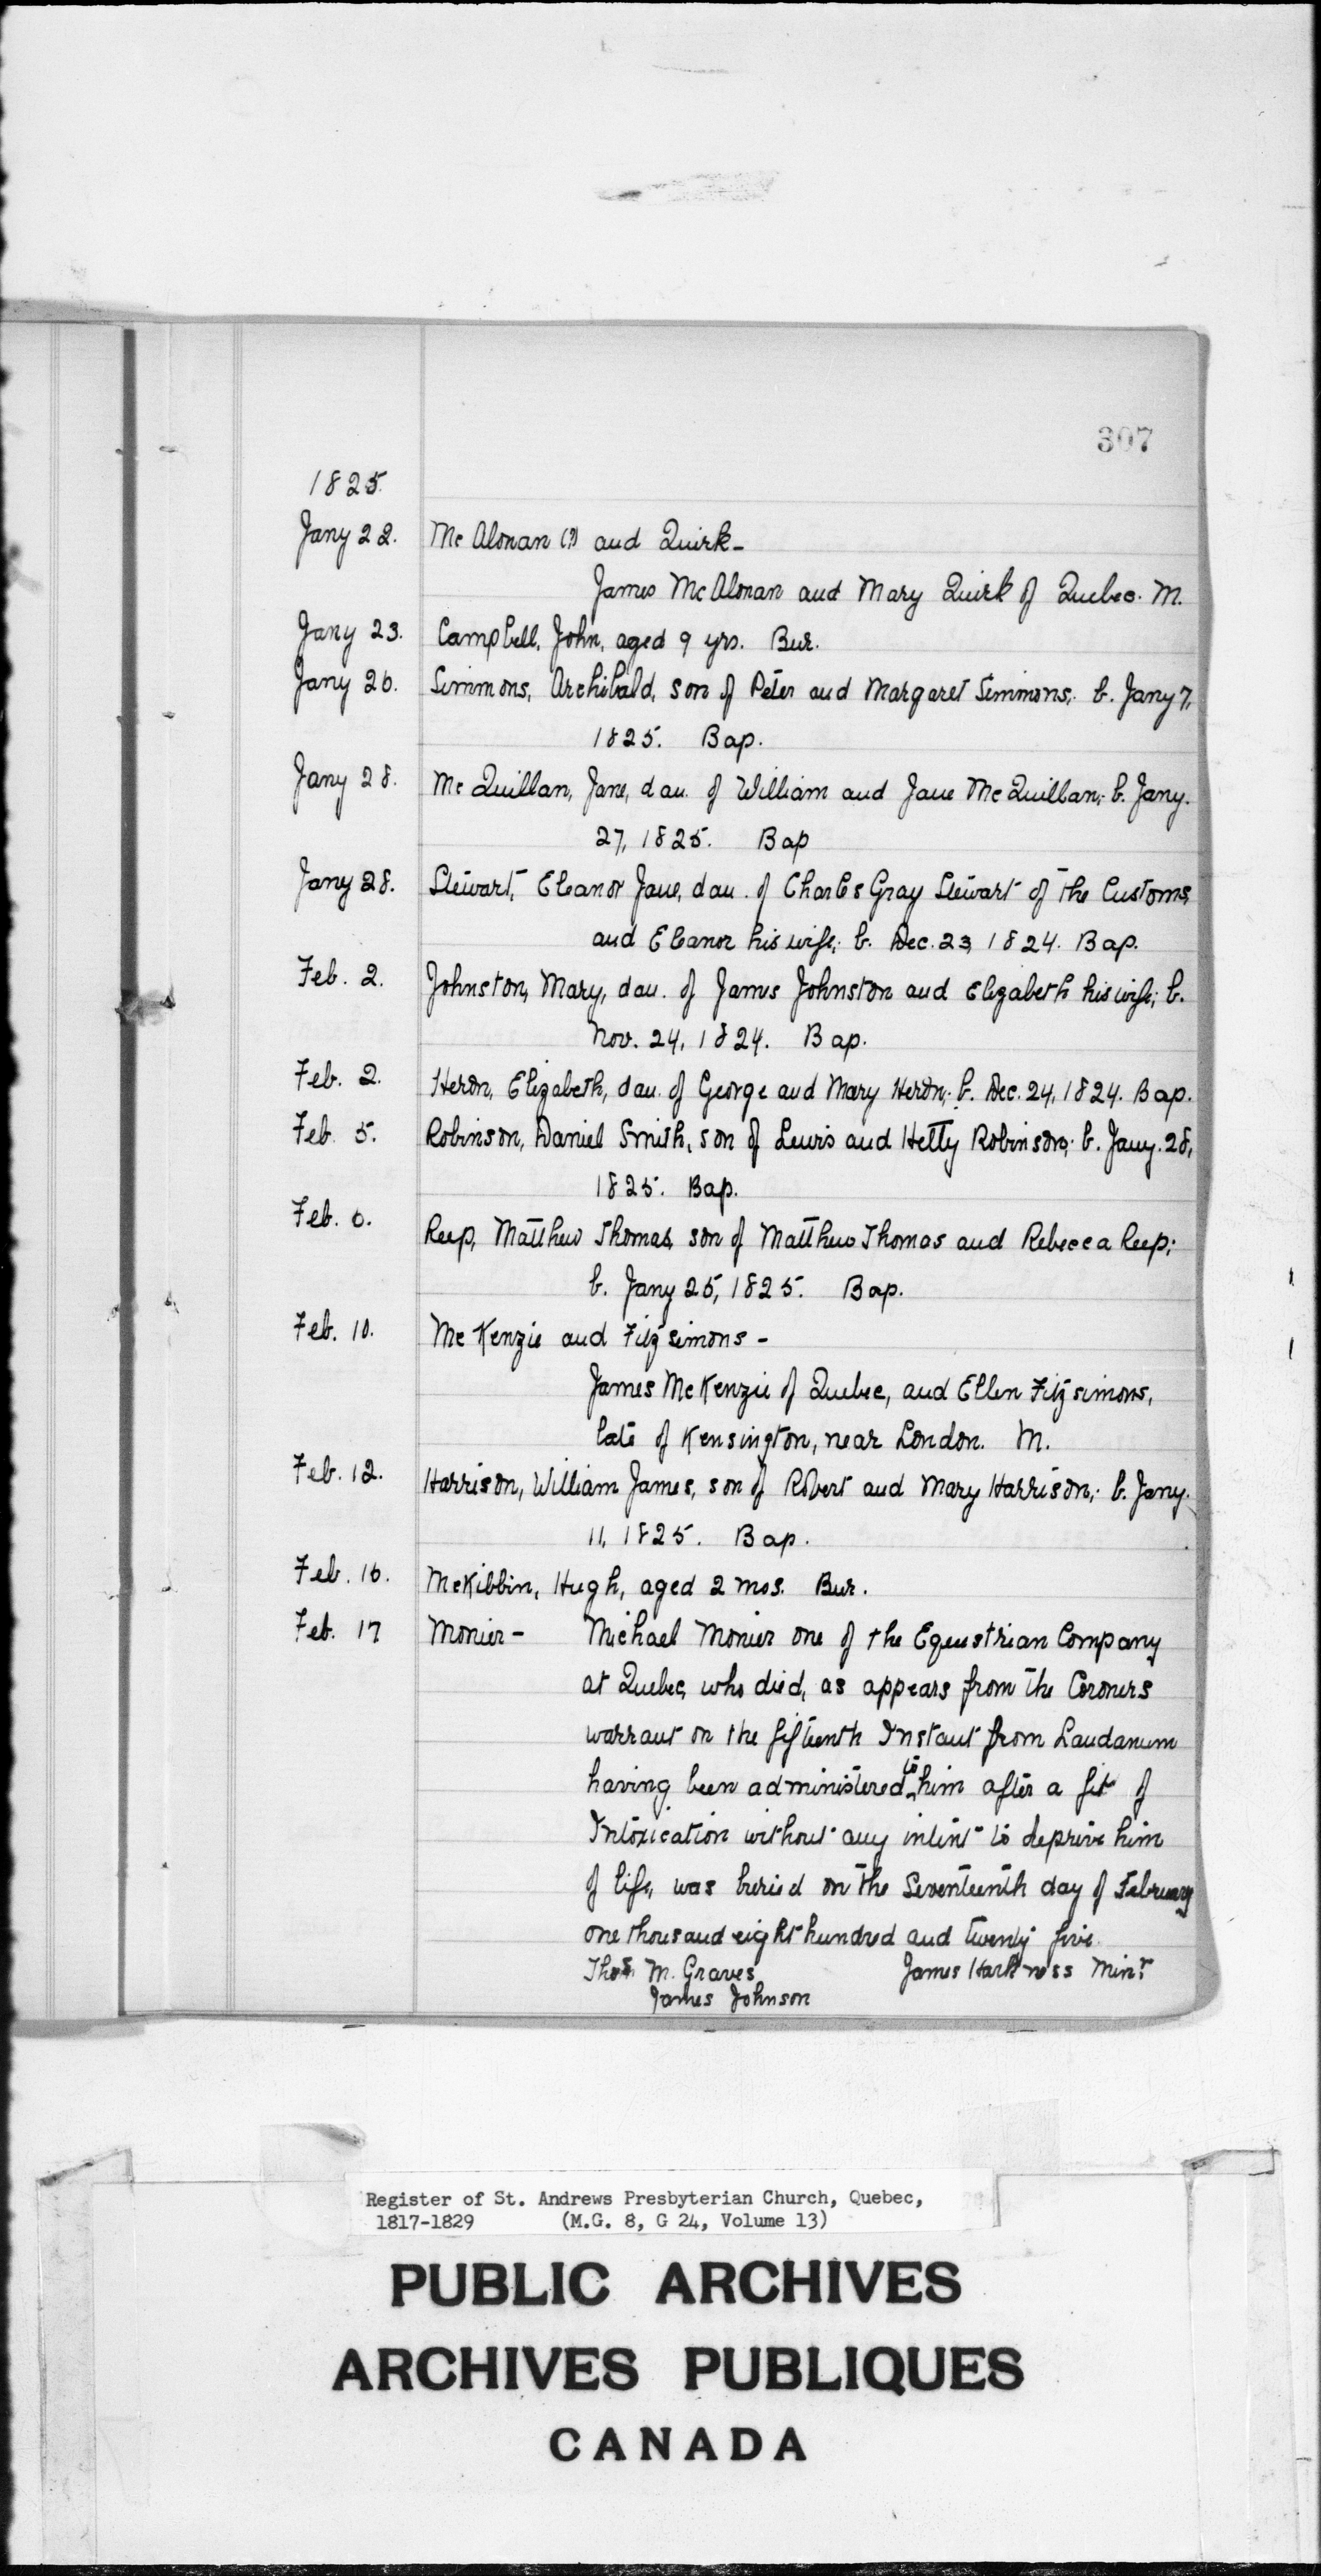 307
1825.
Jany 22. McAlonan (?) and Quirk-
James McAlonan and Mary Quirk of Quebec. M.
Jany 23. Campbell, John, aged 9 yrs. Bur.
Jany 26. Simmons, Archibald, son of Peter and Margaret Simmons; b. Jany 7,
1825. Bap.
Jany 28. McQuillan, Jane, dau. of William and Jane McQuillan; b. Jany.
27, 1825. Bap
Jany 28. Stewart, Eleanor Jane, dau. of Charles Gray Stewart of the Customs,
and Eleanor his wife; b. Dec. 23, 1824. Bap.
Feb. 2. Johnston, Mary, dau. of James Johnston and Elizabeth his wife; b.
Nov. 24, 1824. Bap.
Feb. 2. Heron, Elizabeth, dau. of George and Mary Heron; b. Dec. 24, 1824. Bap.
Feb. 5. Robinson, Daniel Smith, son of Lewis and Hetty Robinson; b. Jany. 28,
1825. Bap.
Feb. 6. Reep, Matthew Thomas, son of Matthew Thomas and Rebecca Reep;
b. Jany 25, 1825. Bap.
Feb. 10. McKenzie and Fitzsimons -
James McKenzie of Quebec, and Ellen Fitzsimons,
late of Kensington, near London. M.
Feb. 12. Harrison, William James, son of Robert and Mary Harrison; b. Jany.
11, 1825. Bap.
Feb. 16. McKibbin, Hugh, aged 2 mos. Bur.
Feb. 17 Monier - Michael Monier one of the Equestrian Company
at Quebec, who died, as appears from the Coroners
warrant on the fifteenth Instant from Laudanum
having been administered to him after a fit of
Intoxication without any intent to deprive him
of life, was buried on the Seventeenth day of February
one thousand eight hundred and twenty five.
Thos M. Graves James Harkness Minr
James Johnson
Register of St. Andrews Presbyterian Church, Quebec,
1817-1829 (M.G. 8, G 24, Volume 13)
PUBLIC ARCHIVES
ARCHIVES PUBLIQUES
CANADA